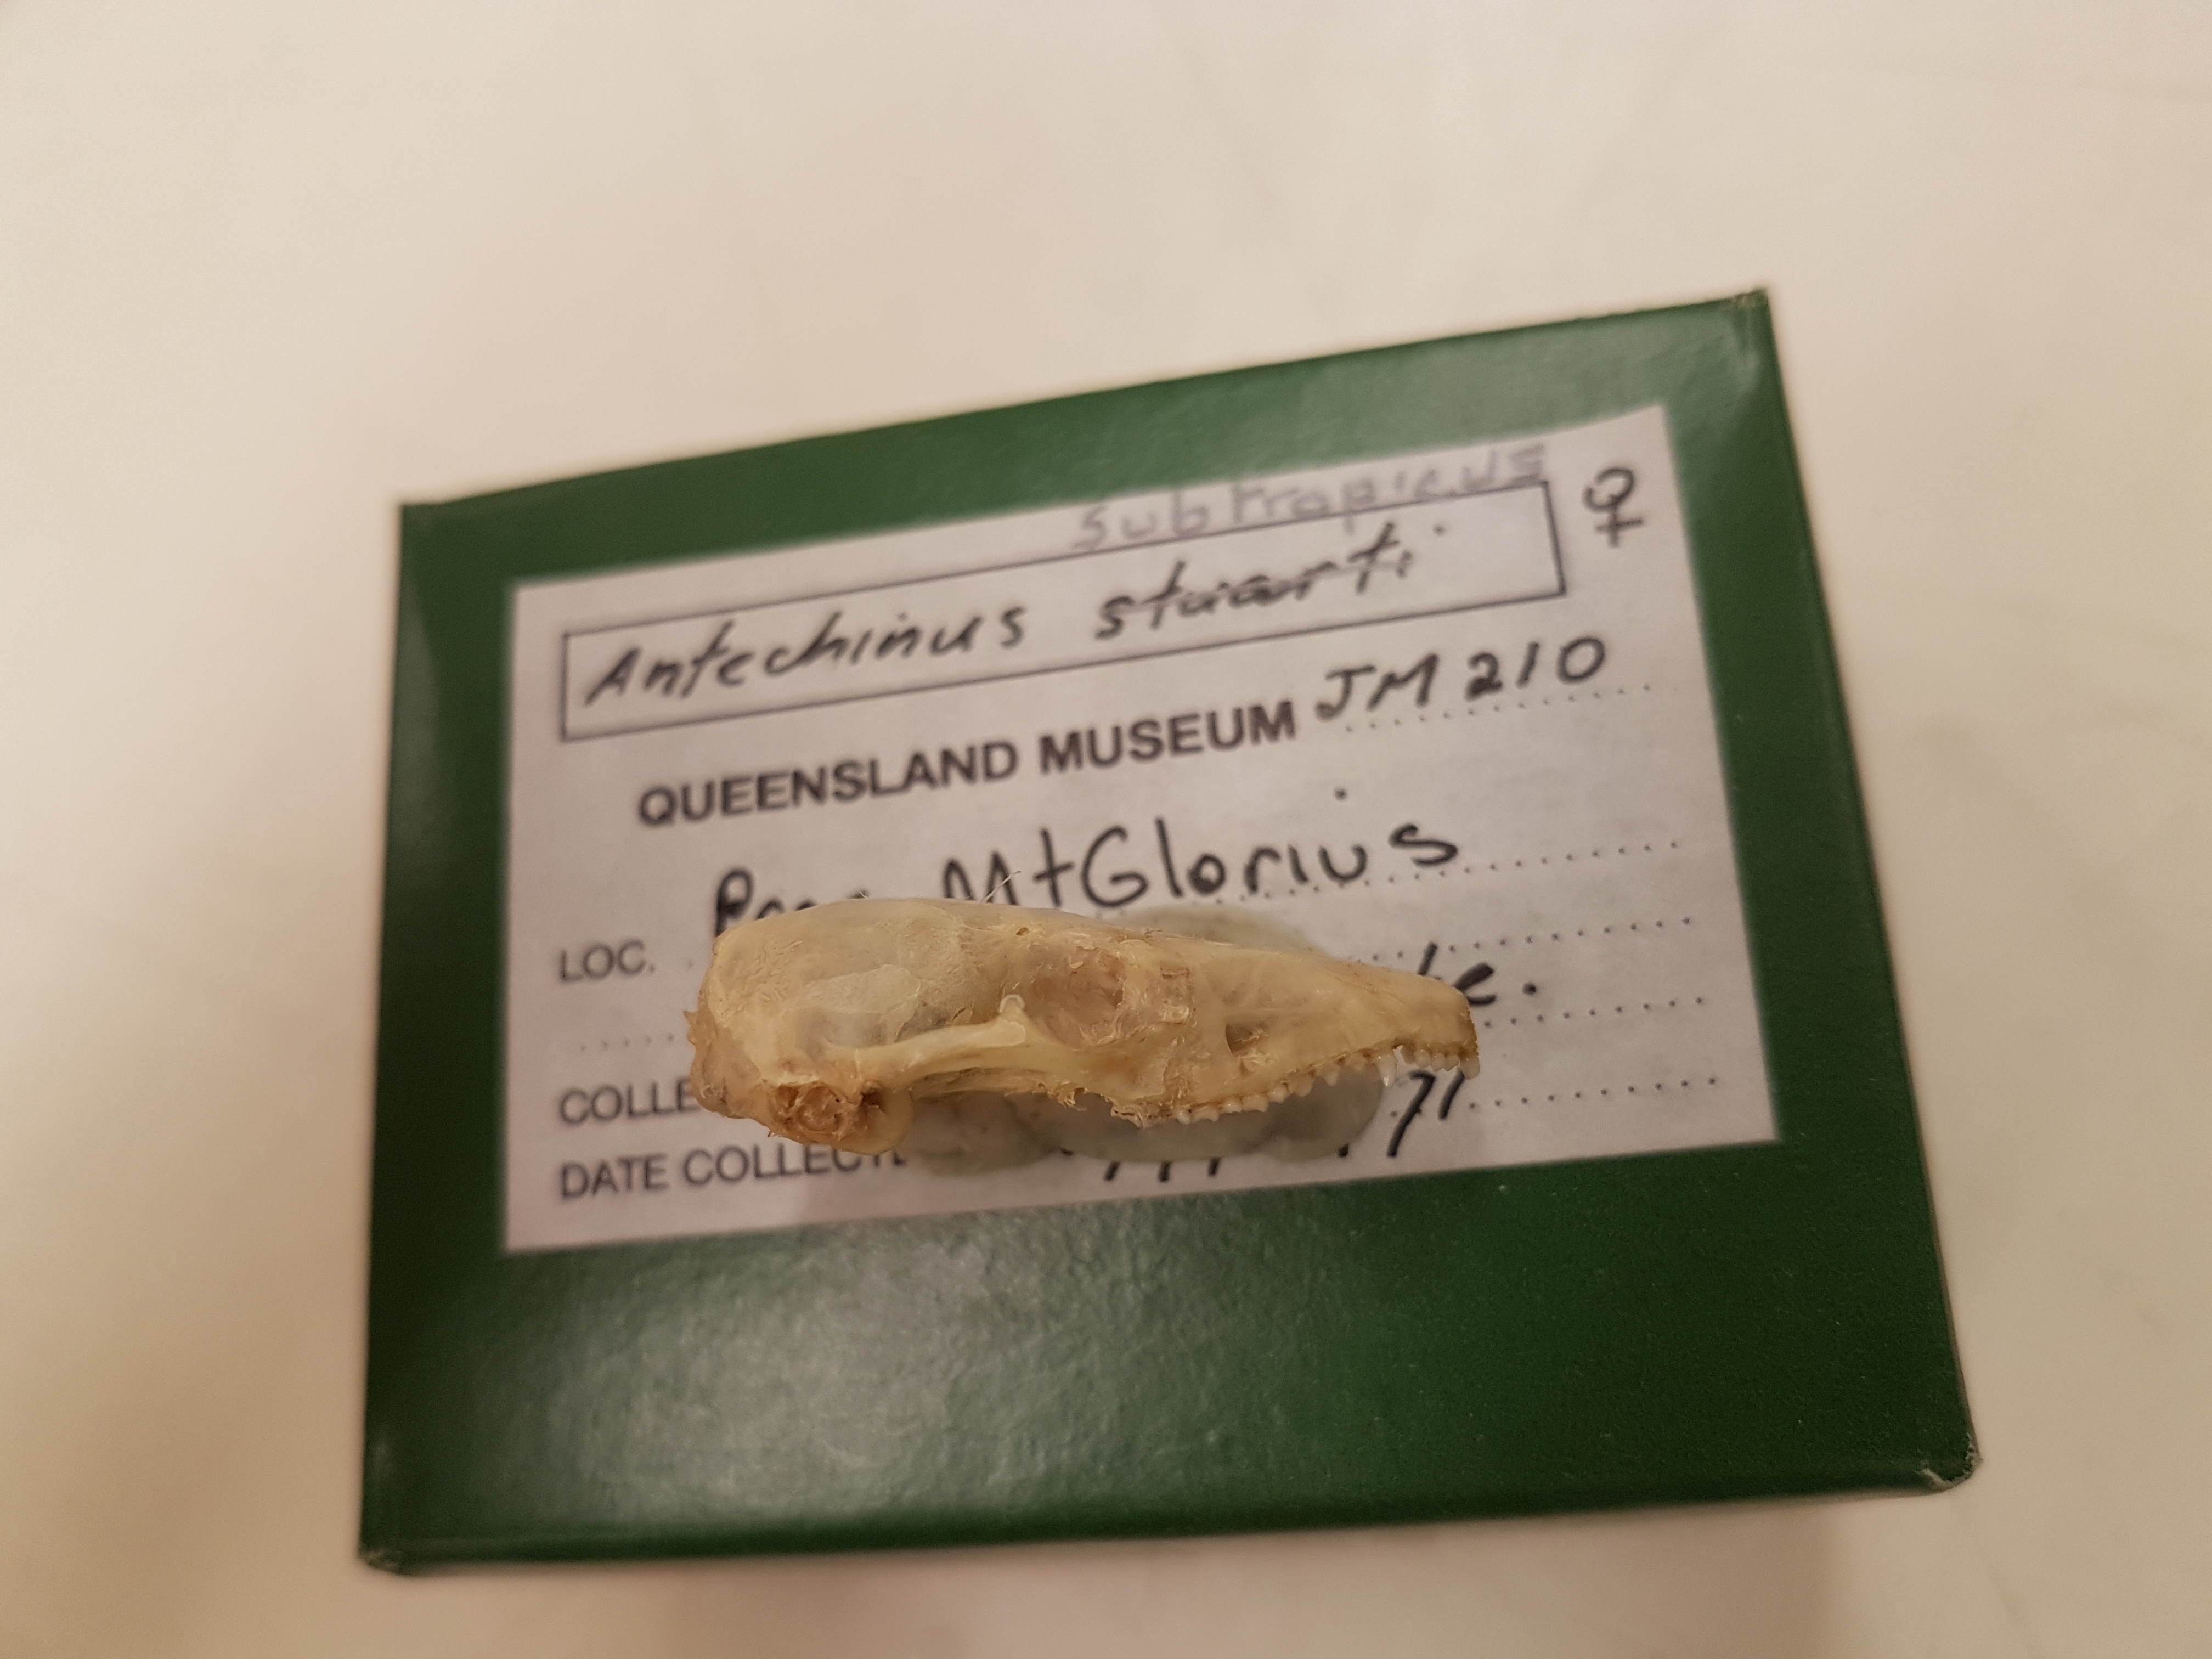 subtropicus
Antechinus stuarti. ♀
QUEENSLAND MUSEUM JM210
LOC. Mt Glorius
COLLE
DATE COLLEC